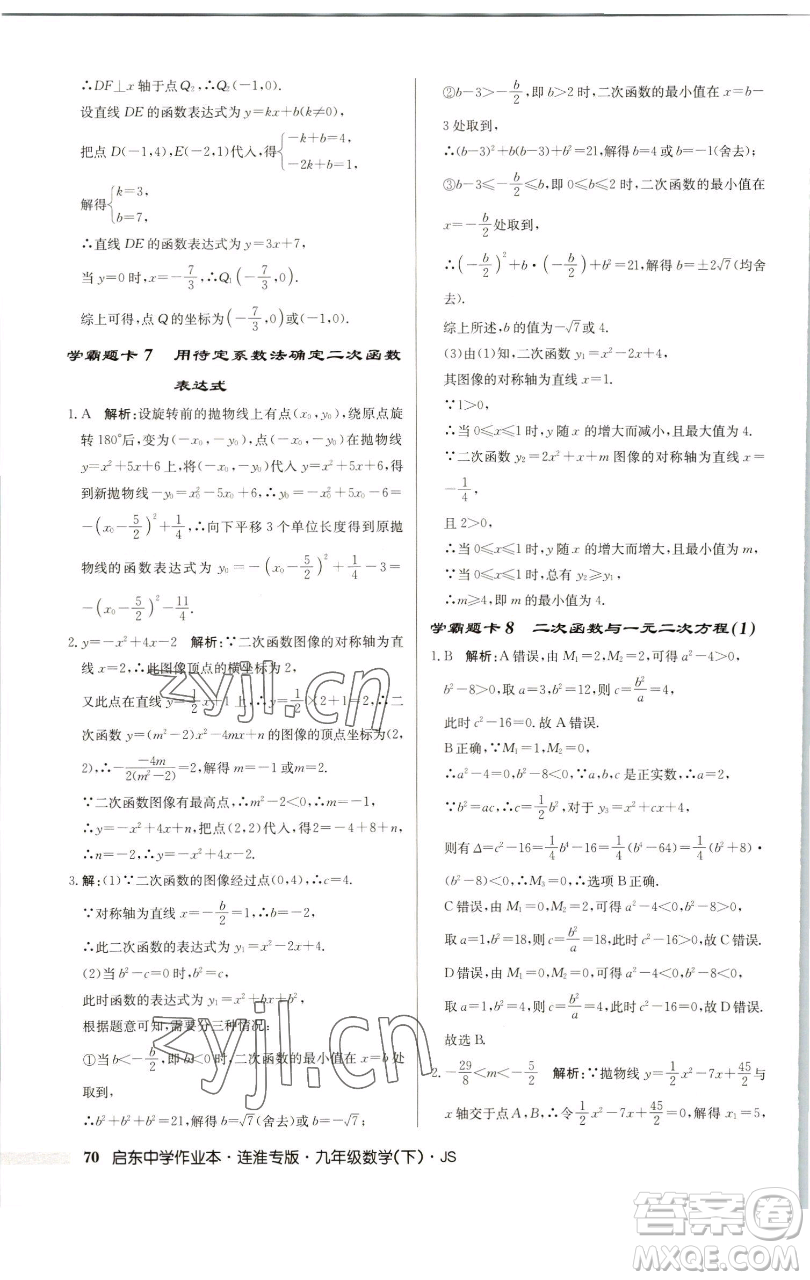 ∴DF⊥x 轴于点 Q₂,∴Q₂(-1,0).
设直线 DE 的函数表达式为 y=kx+b(k≠0),
把点 D(-1,4),E(-2,1)代入,得{-k+b=4, -2k+b=1,
解得{k=3, b=7,
∴直线 DE 的函数表达式为 y=3x+7,
当 y=0 时,x=-7/3,∴Q₁(-7/3,0).
综上可得,点 Q 的坐标为(-7/3,0)或(-1,0).
学霸题卡 7 用待定系数法确定二次函数
表达式
1. A 解析:设旋转前的抛物线上有点(x₀,y₀),绕原点旋
转 180°后,变为(-x₀,-y₀),点(-x₀,-y₀)在抛物线
y=x²+5x+6 上,将(-x₀,-y₀)代入 y=x²+5x+6,得
到新抛物线-y₀=x₀²-5x₀+6,∴y₀=-x₀²+5x₀-6=
-(x₀-5/2)²+1/4,∴向下平移 3 个单位长度得到原抛
物线的函数表达式 y₀=-(x₀-5/2)²+1/4-3=
-(x₀-5/2)²-11/4.
2. y=-x²+4x-2 解析:∵二次函数图像的对称轴为直
线 x=2,∴此图像顶点的横坐标为 2,
又此点在直线 y=1/2x+1 上,∴y=1/2×2+1=2,∴二
次函数 y=(m²-2)x²-4mx+n 的图像的顶点坐标为(2,
2),∴- -4m/2(m²-2)=2,解得 m=-1 或 m=2.
∵二次函数图像有最高点,∴m²-2<0,∴m=-1,
∴y=-x²+4x+n,把点(2,2)代入,得2=-4+8+n,
∴n=-2,∴y=-x²+4x-2.
3. 解:(1)∵二次函数的图像经过点(0,4),∴c=4.
∵对称轴为直线 x=-b/2=1,∴b=-2,
∴此二次函数的表达式为 y₁=x²-2x+4.
(2)当 b²-c=0 时,
此时函数的表达式为 y₁=x²+bx+b²,
根据题意可知,需要分三种情况:
①当 b<-b/2,即 b<0 时,二次函数的最小值在 x=b 处
取到,
∴b²+b²+b²=21,解得 b=√7(舍去)或 b=-√7;
②b-3>-b/2,即 b>2 时,二次函数的最小值在 x=b-
3 处取到,
∴(b-3)²+b(b-3)+b²=21,解得 b=4 或 b=-1(舍去);
③b-3≤-b/2≤b,即 0≤b≤2 时,二次函数的最小值在
x=-b/2处取到,
∴(-b/2)²+b·(-b/2)+b²=21,解得 b=±2√7(均舍
去).
综上所述,b 的值为-√7或 4.
(3)由(1)知,二次函数的表达式为 y₁=x²-2x+4,
其图像的对称轴为直线 x=1.
∵1>0,
∴当 0≤x≤1 时,y 随 x 的增大而减小,且最大值为 4.
∵二次函数 y₂=2x²+x+m 图像的对称轴为直线 x=
-1/4,
且 2>0,
∴当 0≤x≤1 时,y 随 x 的增大而增大,且最小值为 m,
∵当 0≤x≤1 时,总有 y₂≥y₁,
∴m≥4,即 m 的最小值为 4.
学霸题卡 8 二次函数与一元二次方程(1)
1. B 解析:A 错误,由 M₁=2,M₂=2,可得 a²-4>0,
b²-8>0,取 a=3,b²=12,则 c=b²/a=4,
此时 c²-16=0.故 A 错误.
B 正确,∵M₁=1,M₂=0,
∴a²-4=0,b²-8<0,∵a,b,c 是正实数,∴a=2,
∵b²=ac,∴c=1/2b²,对于 y₃=x²+cx+4,
则有 Δ=c²-16=1/4b⁴-16=1/4(b⁴-64)=1/4(b²+8)·
(b²-8)<0,∴M₃=0,∴选项 B 正确.
C 错误,由 M₁=0,M₂=2,可得 a²-4<0,b²-8>0,
取 a=1,b²=18,则 c=b²/a=18,此时 c²-16>0.故 C 错误.
D 错误,由 M₁=0,M₂=0,可得 a²-4<0,b²-8<0,
取 a=1,b²=4,则 c=b²/a=4,此时 c²-16=0.故 D 错误.
故选 B.
2. -29/8<m<-5/2 解析:∵抛物线 y=1/2x²-7x+45/2与
x 轴交于点 A,B,∴令1/2x²-7x+45/2=0,解得 x₁=5,
70 启东中学作业本·连淮专版·九年级数学(下)·JS
zyjl.cn
zyjl.cn
答案圈
MXQE.COM